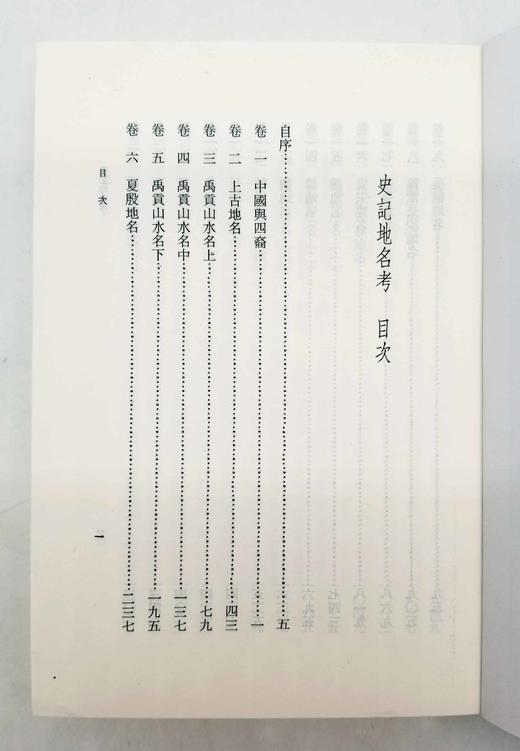 史記地名考 目次
自序……五
卷一 中國與四裔……一
卷二 上古地名……四三
卷三 禹貢山水名上……七九
卷四 禹貢山水名中……一三七
卷五 禹貢山水名下……一九五
卷六 夏殷地名……二三七
目次
一